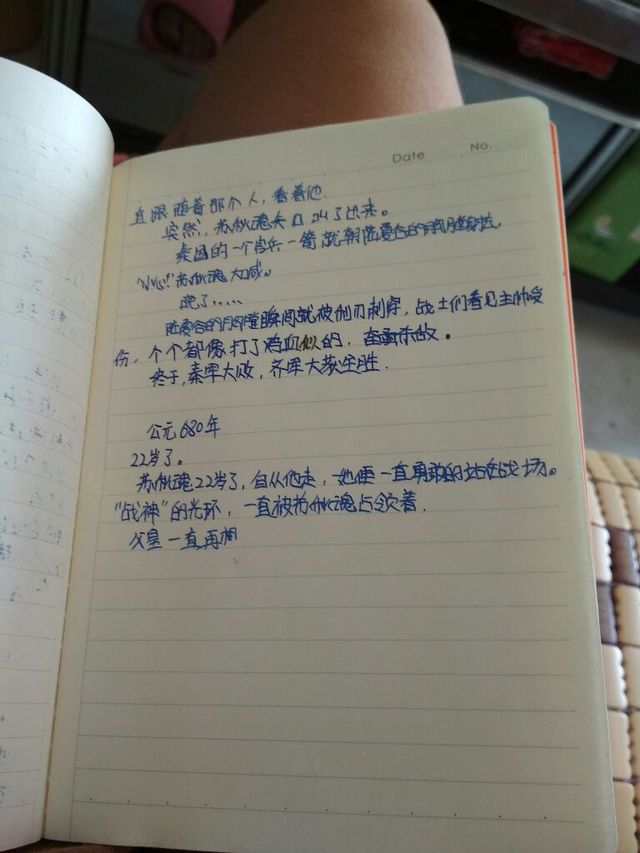 Date No.
直跟随着那个人，看着他.
突然，苏秋魂大叫了起来。
秦国的一个官兵一箭就朝陆云谷的胸膛射去
"小心!"苏秋魂大喊。
晚了.....
的胸膛瞬间就被利刃刺穿，战士们看见主帅受
伤，个个都像打了鸡血似的，奋勇杀敌。
终于，秦军大败，齐军大获全胜.
公元680年
22岁了。
苏秋魂22岁了，自从他走，她便一直勇敢的站在战场。
"战神"的光环，一直被苏秋魂占领着.
父皇一直再想